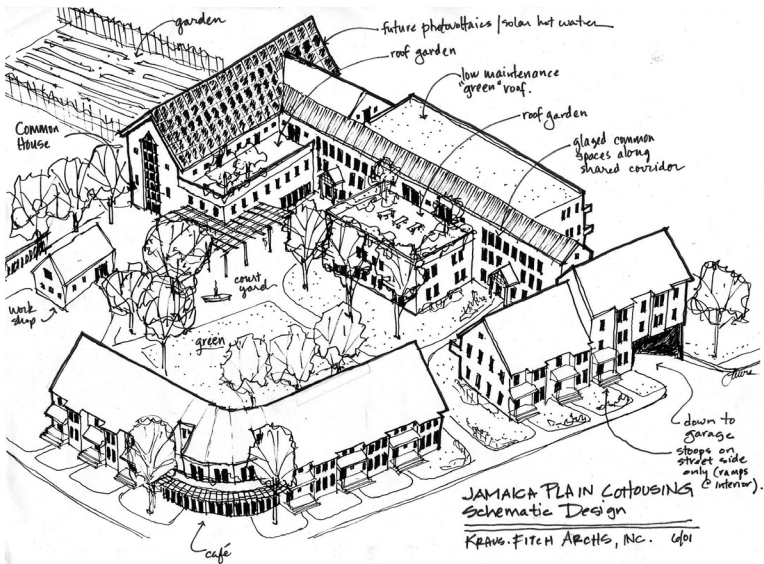 garden
future photovoltaics/solar hot water
roof garden
low maintenance
"green" roof.
roof garden
Common
House
glazed common
spaces along
shared corridor
court
yard
work
shop
green
down to
garage
stoops on
street side
only (ramps
@ interior).
café
JAMAICA PLAIN COHOUSING
Schematic Design
KRAUS·FITCH ARCHS, INC. 6/01